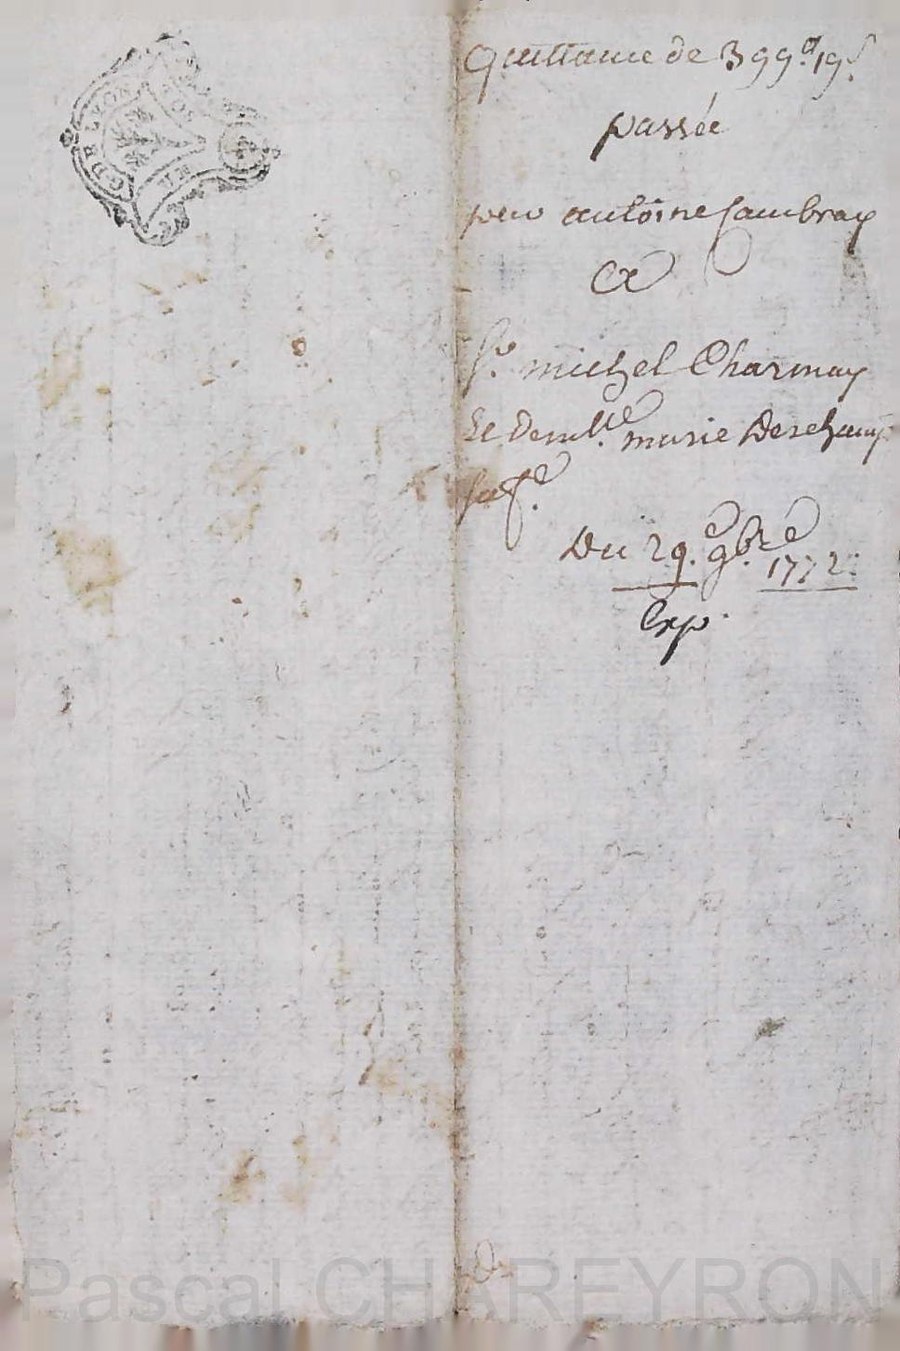 GDE LYON
Quittance de 399ᵗᵗ 19ˢ
passée
par antoine Cambray
a
Sʳ. michel Charmay
Et Demˡˡᵉ. marie Deschamp
sa fᵉ.
Du 29.ᵉ 9.bre 1772.
Exp.
Pascal CHAREYRON